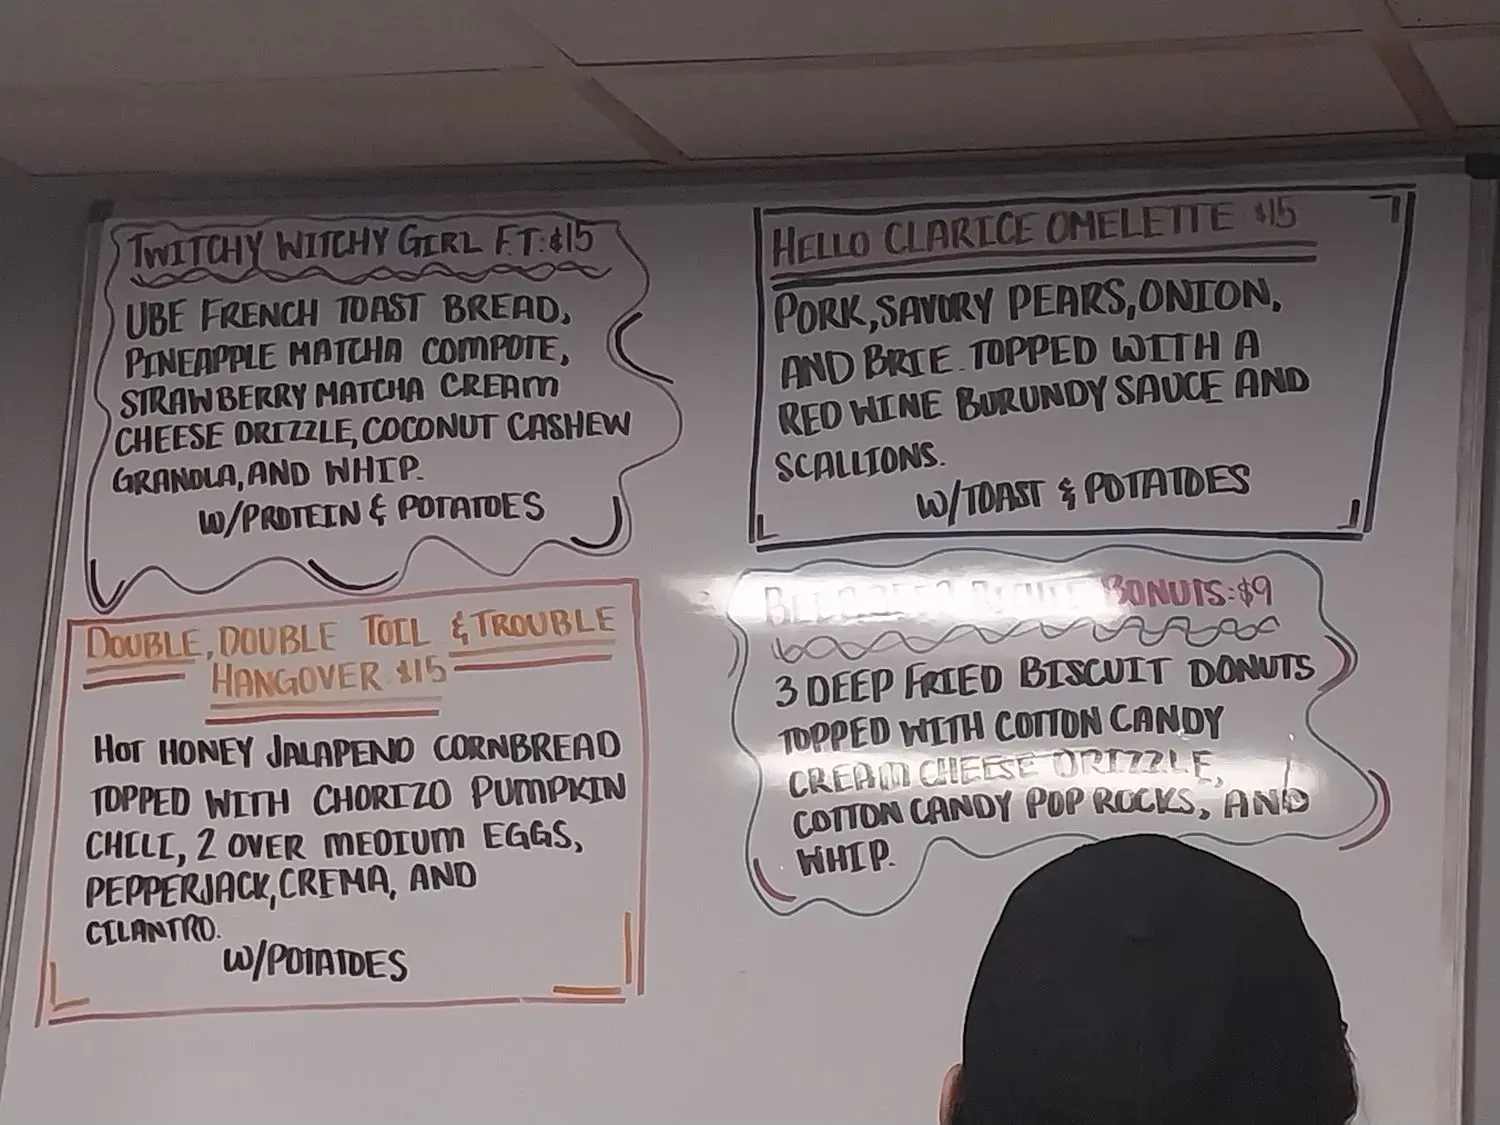 TWITCHY WITCHY GIRL F.T: $15
UBE FRENCH TOAST BREAD,
PINEAPPLE MATCHA COMPOTE,
STRAWBERRY MATCHA CREAM
CHEESE DRIZZLE, COCONUT CASHEW
GRANOLA, AND WHIP.
W/PROTEIN & POTATOES
DOUBLE, DOUBLE TOIL & TROUBLE
HANGOVER $15
HOT HONEY JALAPENO CORNBREAD
TOPPED WITH CHORIZO PUMPKIN
CHILI, 2 OVER MEDIUM EGGS,
PEPPERJACK, CREMA, AND
CILANTRO.
W/POTATOES
HELLO CLARICE OMELETTE $15
PORK, SAVORY PEARS, ONION,
AND BRIE. TOPPED WITH A
RED WINE BURUNDY SAUCE AND
SCALLIONS.
W/TOAST & POTATOES
BONUTS: $9
3 DEEP FRIED BISCUIT DONUTS
TOPPED WITH COTTON CANDY
CREAM CHEESE DRIZZLE,
COTTON CANDY POP ROCKS, AND
WHIP.